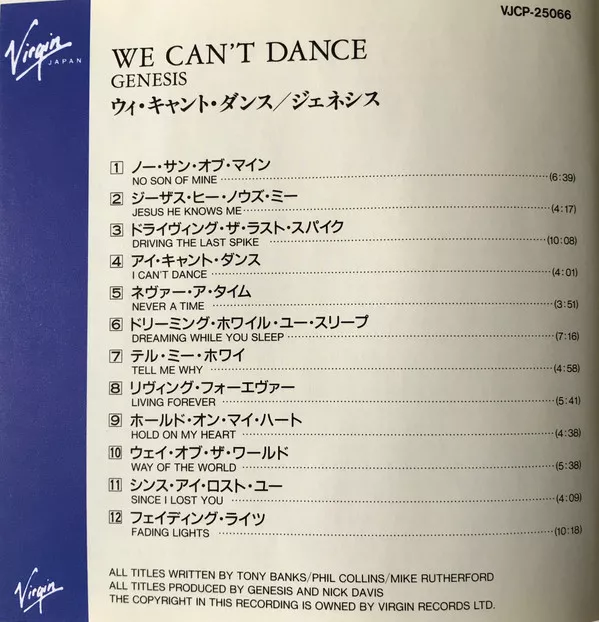 VJCP-25066
Virgin
JAPAN
WE CAN'T DANCE
GENESIS
ウィ・キャント・ダンス/ジェネシス
1 ノー・サン・オブ・マイン
NO SON OF MINE (6:39)
2 ジーザス・ヒー・ノウズ・ミー
JESUS HE KNOWS ME (4:17)
3 ドライヴィング・ザ・ラスト・スパイク
DRIVING THE LAST SPIKE (10:08)
4 アイ・キャント・ダンス
I CAN'T DANCE (4:01)
5 ネヴァー・ア・タイム
NEVER A TIME (3:51)
6 ドリーミング・ホワイル・ユー・スリープ
DREAMING WHILE YOU SLEEP (7:16)
7 テル・ミー・ホワイ
TELL ME WHY (4:58)
8 リヴィング・フォーエヴァー
LIVING FOREVER (5:41)
9 ホールド・オン・マイ・ハート
HOLD ON MY HEART (4:38)
10 ウェイ・オブ・ザ・ワールド
WAY OF THE WORLD (5:38)
11 シンス・アイ・ロスト・ユー
SINCE I LOST YOU (4:09)
12 フェイディング・ライツ
FADING LIGHTS (10:18)
ALL TITLES WRITTEN BY TONY BANKS/PHIL COLLINS/MIKE RUTHERFORD
ALL TITLES PRODUCED BY GENESIS AND NICK DAVIS
THE COPYRIGHT IN THIS RECORDING IS OWNED BY VIRGIN RECORDS LTD.
Virgin